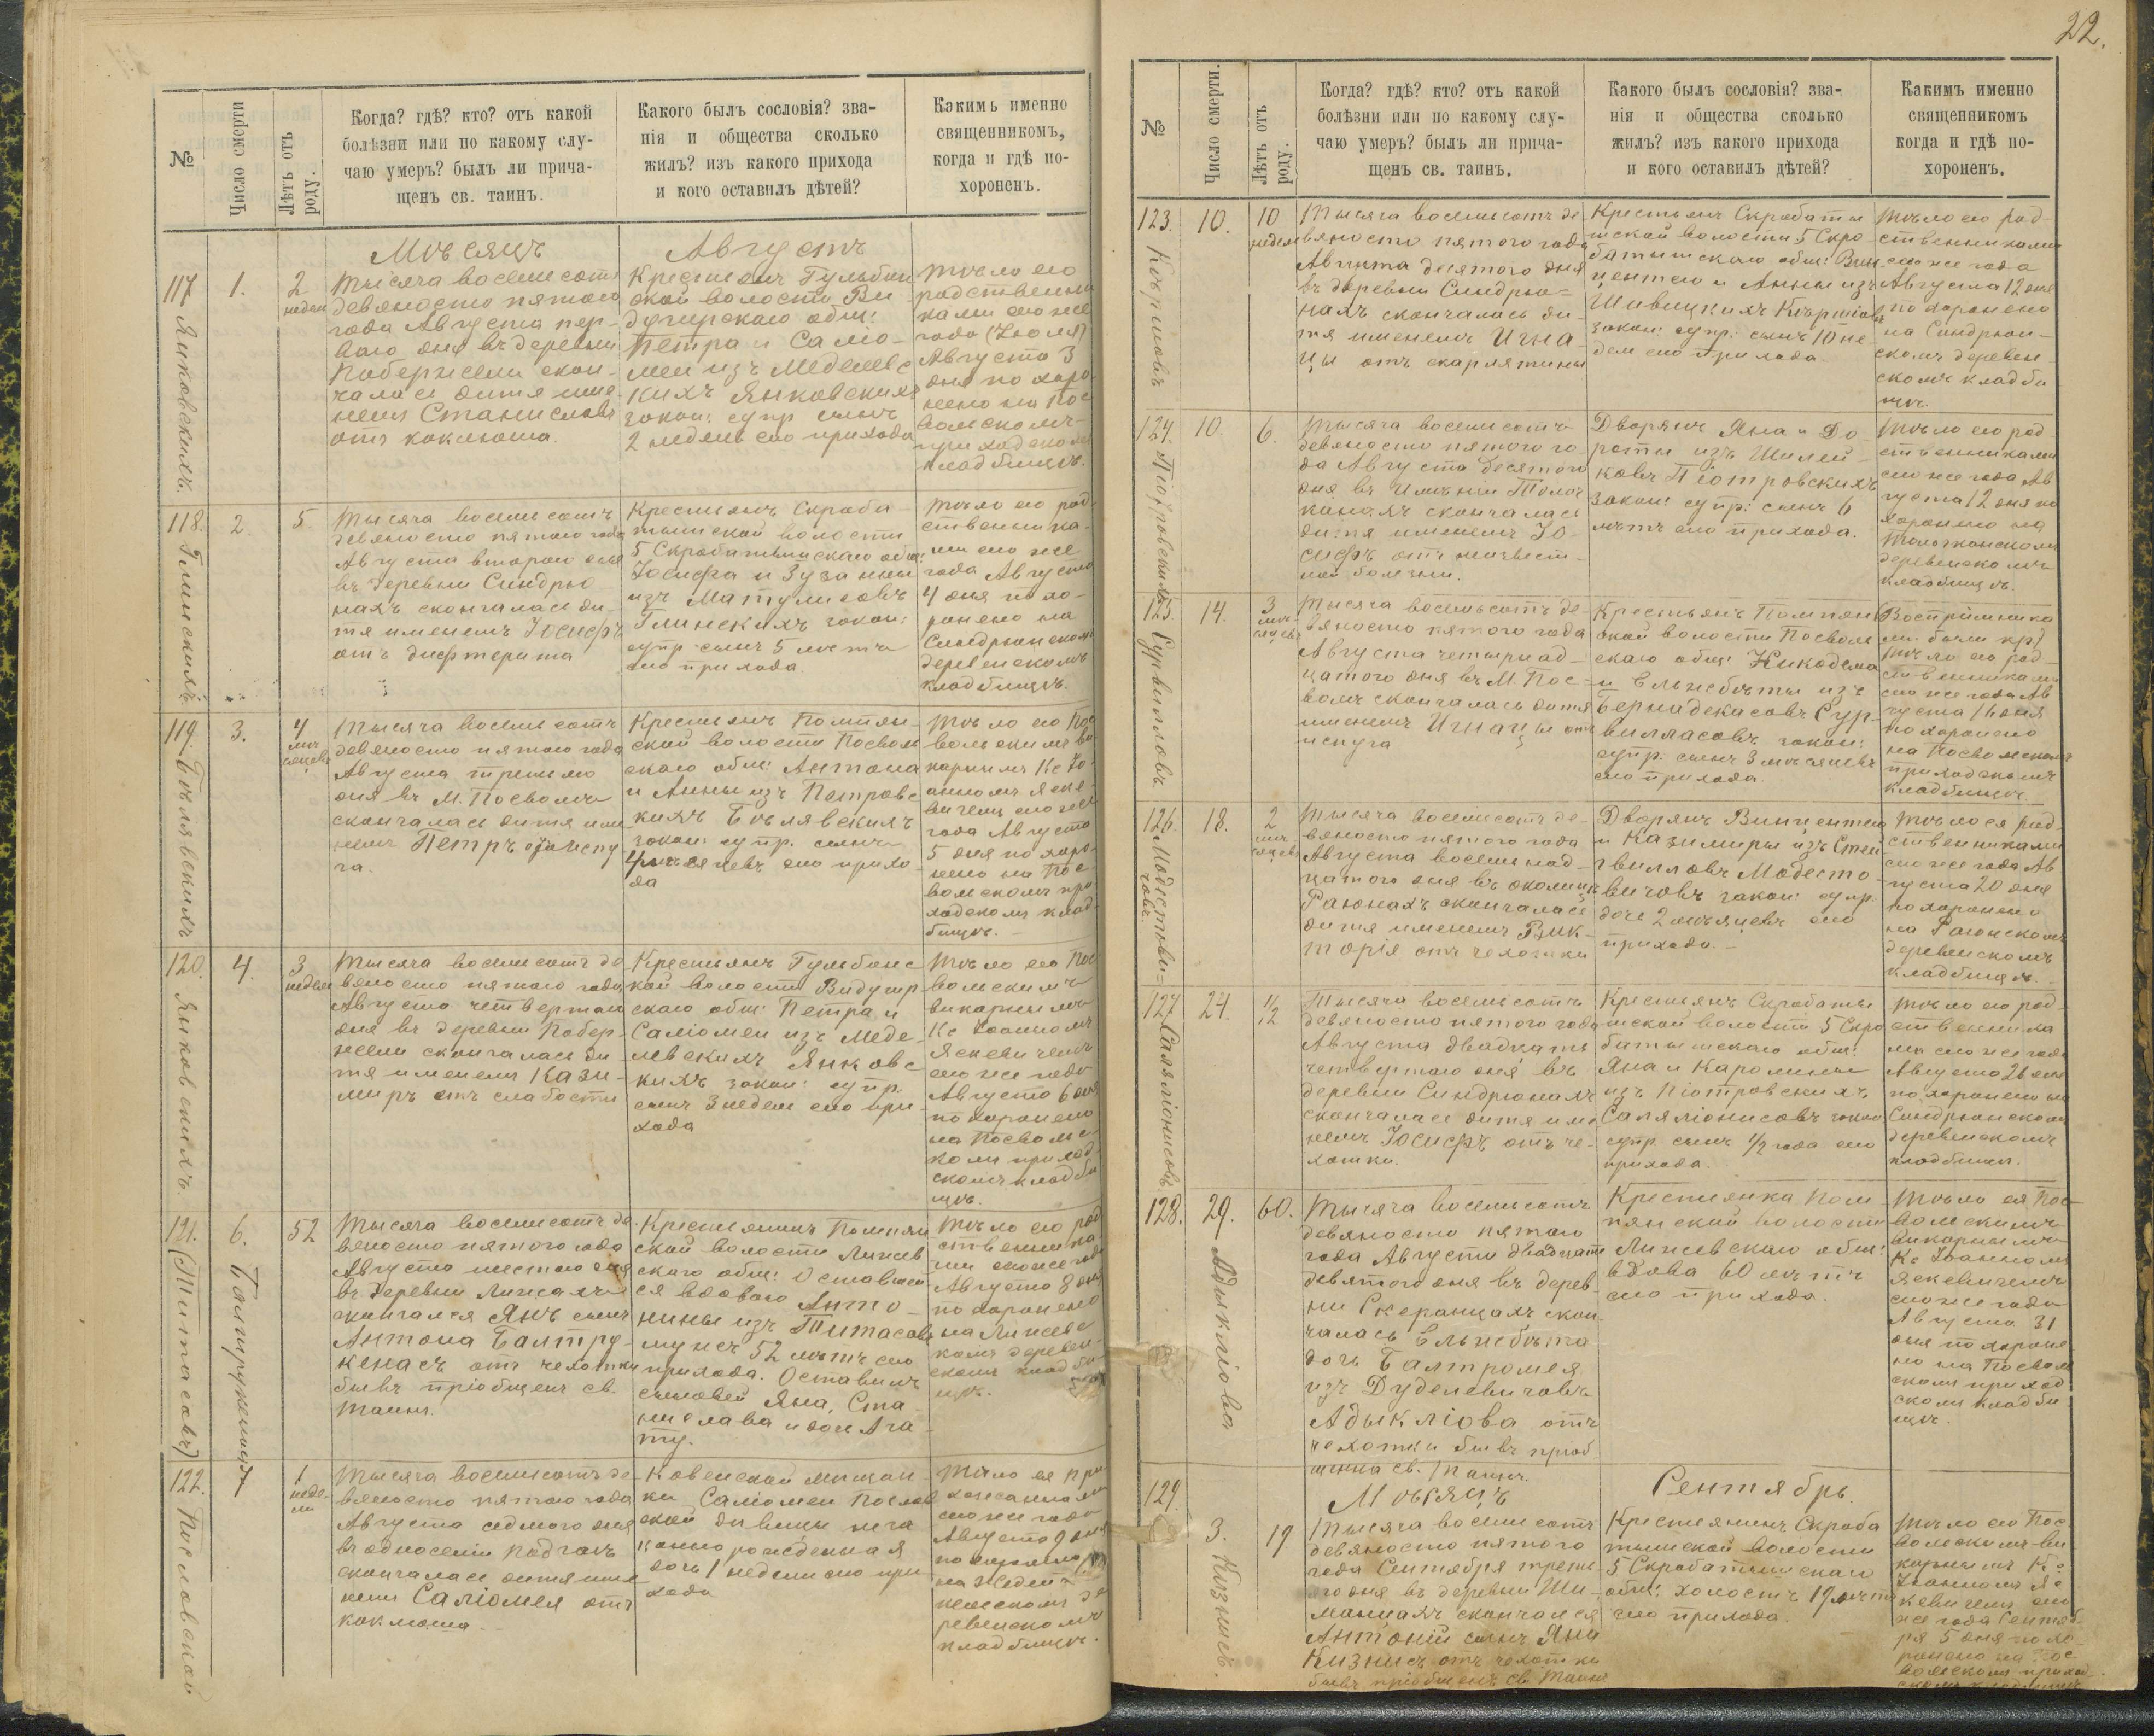 №
Число смерти
Лѣтъ отъ роду.
Когда? гдѣ? кто? отъ какой
болѣзни или по какому слу-
чаю умеръ? былъ ли прича-
щенъ св. таинъ.
Какого былъ сословія? зва-
нія и общества сколько
жилъ? изъ какого прихода
и кого оставилъ дѣтей?
Какимъ именно
священникомъ,
когда и гдѣ по-
хороненъ.
Мѣсяцъ
Августъ
117
Янковскихъ.
1.
2
недел
Тысяча восемьсотъ
девяносто пятого
года Августа пер-
ваго дня въ деревни
скон-
чалась дитя име-
немъ Станиславъ
отъ коклюша.
Крестьянъ Гульбин
ской волости Ви-
дугирскаго общ:
Петра и Саліо-
меи изъ Меделевс
кихъ Янковскихъ
закон: супр. сынъ
2 недель сего прихода
Тѣло его
родственни
ками сего же
года (Іюля)
Августа 3
дня похоро
нено на Пос
вольскомъ
приходском
кладбищѣ.
118.
Глинскихъ
2.
5.
Тысяча восемьсотъ
девяносто пятого года
Августа второго дня
въ деревни Синдрю
нахъ скончалась ди-
тя именемъ Іосифъ
отъ дифтерита
Крестьянъ Скроба-
тышской волости
5 Скробатышскаго общ:
Іосифа и Зузанны
изъ Матулисовъ
Глинскихъ закон:
супр. сынъ 5 лѣтъ
сего прихода.
Тѣло его род
ственника-
ми сего же
года Августа
4 дня похо-
ронено на
Синдрюнском
деревенскомъ
кладбищѣ.
119.
Бѣлявскихъ
3.
4
мѣ
сяцевъ
Тысяча восемьсотъ
девяносто пятого года
Августа третьяго
дня въ М. Посволѣ
скончалась дитя име
немъ Петръ отъ испу
га.
Крестьянъ Помпян-
ской волости Посволь
скаго общ: Антона
и Анны изъ Петровс
кихъ Бѣлявскихъ
закон: супр. сынъ
4 мѣсяцевъ сего прихо-
да
Тѣло его Пос
вольскимъ ви
карнымъ Кс Іо
анномъ Яске-
вичемъ сего же
года Августа
5 дня похоро-
нено на Пос-
вольскомъ при
ходскомъ клад
бищѣ.
120.
Янковскихъ.
4.
3
недел
Тысяча восемьсотъ де
вяносто пятого года
Августа четвертаго
дня въ деревни Побер-
жели скончалась ди-
тя именемъ Кази-
миръ отъ слабости
Крестьянъ Гульбинс
кой волости Видугир-
скаго общ: Петра и
Саліомеи изъ Меде-
левскихъ Янковс
кихъ закон: супр.
сынъ 3 недел сего при-
хода
Тѣло его Пос
вольскимъ
викарнымъ
Кс Іоанномъ
Яскевичемъ
сего же года
Августа 6 дня
похоронено
на Посвольс-
комъ приход
скомъ кладби
щѣ.
121.
(Титасовъ)
6.
52
Тысяча восемьсотъ де-
вяносто пятого года
Августа шестаго дня
въ деревни
скончался Янъ сынъ
Антона Балтру-
кенасъ отъ чехотки
бывъ пріобщенъ св.
таинъ.
Крестьянинъ Помпян
ской волости
скаго общ: Оставшей-
ся вдоваго Анто-
нины изъ Титасовъ
мужъ 52 лѣтъ сего
прихода. Оставилъ
сыновей Яна, Ста-
нислава и дочь Ага-
ту.
Тѣло его род
ственника
ми сего же года
Августа 8 дня
похоронено
комъ деревен-
скомъ кладби-
щѣ.
122.
Пословской
7
1
неде-
ли
Тысяча восемьсотъ де-
вяносто пятого года
Августа седмого дня
скончалась дитя име
немъ Саліомея отъ
коклюша.
Ковенской мѣщан-
ки Саліомеи Послов
ской дѣвицы неза
конно рожденная
дочь 1 недели сего при
хода
Тѣло ея при
хожанами
сего же года
Августа 9 дня
похоронено
де
ревенскомъ
кладбищѣ.
22.
№
Число смерти.
Лѣтъ отъ роду.
Когда? гдѣ? кто? отъ какой
болѣзни или по какому слу-
чаю умеръ? былъ ли прича-
щенъ св. таинъ.
Какого былъ сословія? зва-
нія и общества сколько
жилъ? изъ какого прихода
и кого оставилъ дѣтей?
Какимъ именно
священникомъ
когда и гдѣ по-
хороненъ.
123.
10.
10
недел
Тысяча восемьсотъ де
вяносто пятого года
Августа десятого дня
въ деревни Синдрю-
нахъ скончалась ди-
тя именемъ Игна-
цы отъ скарлятины
Крестьянъ Скробаты
шской волости 5 Скро
батышскаго общ: Вин
центего и Анны изъ
закон: супр. сынъ 10 не-
дел сего прихода.
Тѣло его род-
ственниками
сего же года
Августа 12 дня
похоронено
на Синдрюн-
скомъ деревен-
скомъ кладби
щѣ.
124.
Піотровскихъ
10.
6.
Тысяча восемьсотъ
девяносто пятого го
да Августа десятого
дня въ имѣніи Толоч
канахъ скончалась
дитя именемъ Іо-
сифъ отъ неизвест-
ной болезни.
Дворянъ Яна и До-
роты изъ Шилей-
ковъ Піотровскихъ
закон: супр: сынъ 6
лѣтъ сего прихода.
Тѣло его род
ственниками
сего же года Ав
густа 12 дня по
хоронено на
Толочканскомъ
деревенскомъ
кладбищѣ.
125.
Сурвилловъ
14.
3
мѣ
сяцевъ
Тысяча восемьсотъ де-
вяносто пятого года
Августа четырнад-
цатого дня въ М. Пос-
волѣ скончалась дитя
именемъ Игнацы отъ
испуга
Крестьянъ Помпян
ской волости Посволь
скаго общ: Никодема
и Ельжбѣты изъ
Бернадекасовъ Сур-
виллясовъ закон:
супр. сынъ 3 мѣсяцевъ
сего прихода.
Тѣло его род-
ственниками
сего же года Ав
густа 16 дня
похоронено
на Посвольскомъ
приходскомъ
кладбищѣ.
126.
Модестови-
човъ.
18.
2
мѣ
сяцевъ
Тысяча восемьсотъ де-
вяносто пятого года
Августа восемьнад-
цатого дня въ околицѣ
Раюнахъ скончалась
дитя именемъ Вик-
торія отъ чехотки
Дворянъ Винцентего
и Казимиры изъ Стей
гвилловъ Модесто-
вичовъ закон: супр.
дочь 2 мѣсяцевъ сего
прихода.
Тѣло ея род-
ственниками
сего же года Ав
густа 20 дня
похоронено
на Раюнскомъ
деревенскомъ
кладбищѣ.
127.
Саляліонисовъ
24.
1/2
Тысяча восемьсотъ
девяносто пятого года
Августа двадцать
четвертого дня въ
деревни Синдрюнахъ
скончалась дитя име
немъ Іосифъ отъ че-
хотки.
Крестьянъ Скробаты
шской волости 5 Скро
батышскаго общ:
Яна и Каролины
изъ Піотровскихъ
Саляліонисовъ закон:
супр. сынъ 1/2 года сего
прихода.
Тѣло его род-
ственника
ми сего же года
Августа 26 дня
похоронено на
Синдрюнскомъ
деревенскомъ
кладбищѣ.
128.
Адыкліова
29.
60.
Тысяча восемьсотъ
девяносто пятого
года Августа двадцать
девятого дня въ дерев
ни Скеранцахъ скон
чалась Ельжбѣта
дочь Балтромея
изъ Дуделевичовъ
Адыкліова отъ
чехотки бывъ пріоб
щенна св. таинъ.
Крестьянка Пом
пянской волости
вдова 60 лѣтъ
сего прихода.
Тѣло ея Пос-
вольскимъ
викарнымъ
Кс Іоанномъ
Яскевичемъ
сего же года
Августа 31
дня похороне
но на Посволь
скомъ приход
скомъ кладби
щѣ.
Мѣсяцъ
Сентябрь.
129.
Кизнисъ.
3.
19
Тысяча восемьсотъ
девяносто пятого
года Сентября треть
яго дня въ деревни Ши-
скончался
Антоній сынъ Яна
Кизнисъ отъ чехотки
бывъ пріобщенъ св. таинъ
Крестьянинъ Скроба
тышской волости
5 Скробатышскаго
общ: холостъ 19 лѣтъ
сего прихода.
Тѣло его Пос
вольскимъ ви
карнымъ Кс
Іоанномъ Яс
кевичемъ сего
же года Сентяб
ря 5 дня похо-
ронено на Пос
вольскомъ приход-
скомъ кладбищѣ